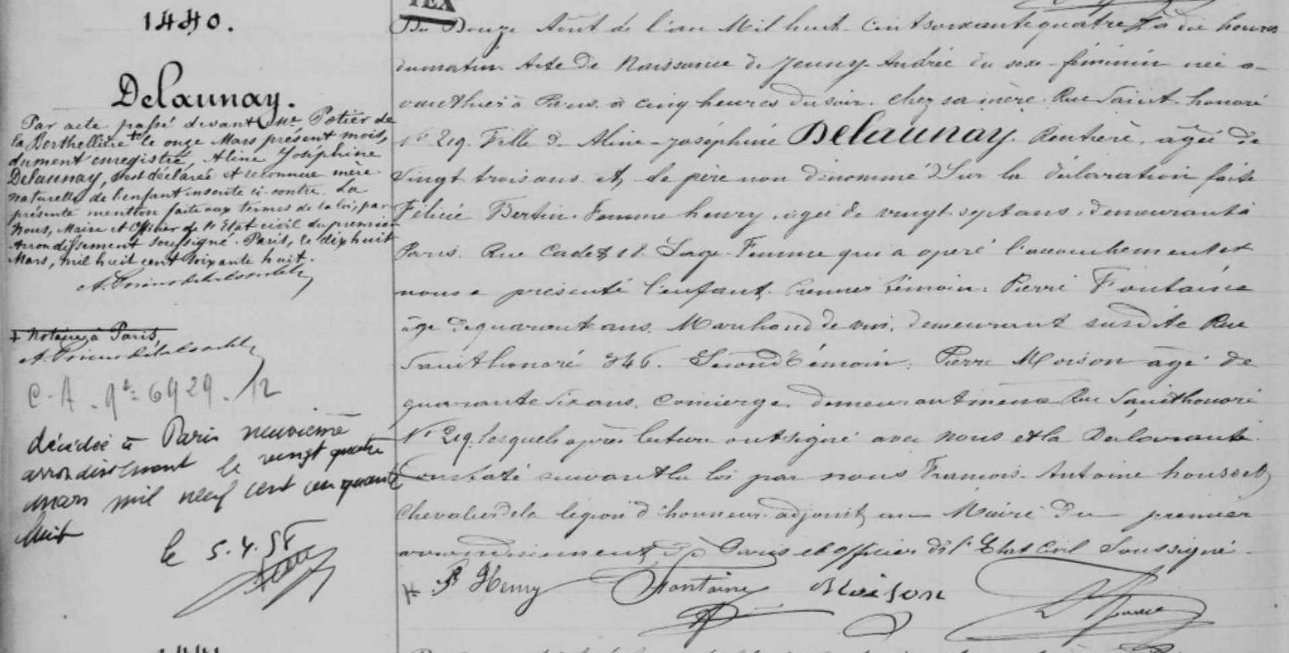 1440.
Delaunay.
Par acte passé devant Me Potier de
la Berthellière + le onze Mars présent mois,
dument enregistré, Aline Joséphine
Delaunay, s'est déclarée et reconnue mère
naturelle de l'enfant inscrite ci-contre. La
présente mention faite aux termes de la loi, par
Nous, Maire et Officier de l'Etat civil du premier
Arrondissement soussigné. Paris, le dix huit
Mars, mil huit cent soixante huit.
+ Notaire à Paris,
C.A. 6929. 12
décédée à Paris neuvième
arrondissement le vingt quatre
mars mil neuf cent cinquante
huit
le 5.4.58
Du Douze Août de l'an Mil huit cent soixante quatre à dix heures
du matin. Acte de Naissance de Jenny Andrée du sexe féminin née a-
vant hier à Paris à cinq heures du soir. chez sa mère Rue Saint honoré
No 219. Fille de Aline-Joséphine Delaunay. Rentière, agée de
vingt trois ans et de père non dénommé Sur la déclaration faite
Félicie Bertin. femme henry. agée de vingt sept ans. demeurant à
Paris. Rue Cadet 18. Sage Femme qui a opéré l'accouchement et
nous a présenté l'enfant. Premier témoin: Pierre Fontaine
âgé de quarante ans. Marchand de vin. demeurant susdite Rue
Saint honoré 346. Second témoin: Pierre Moison âgé de
quarante six ans. Concierge. demeurant même Rue Saint honoré
No 219. lesquels après lecture ont signé avec nous et la Déclarante.
Constaté suivant la loi par nous François Antoine housset
Chevalier de la légion d'honneur adjoint au Maire du premier
arrondissement de Paris et officier de l'Etat Civil Soussigné.
Henry Fontaine Moison